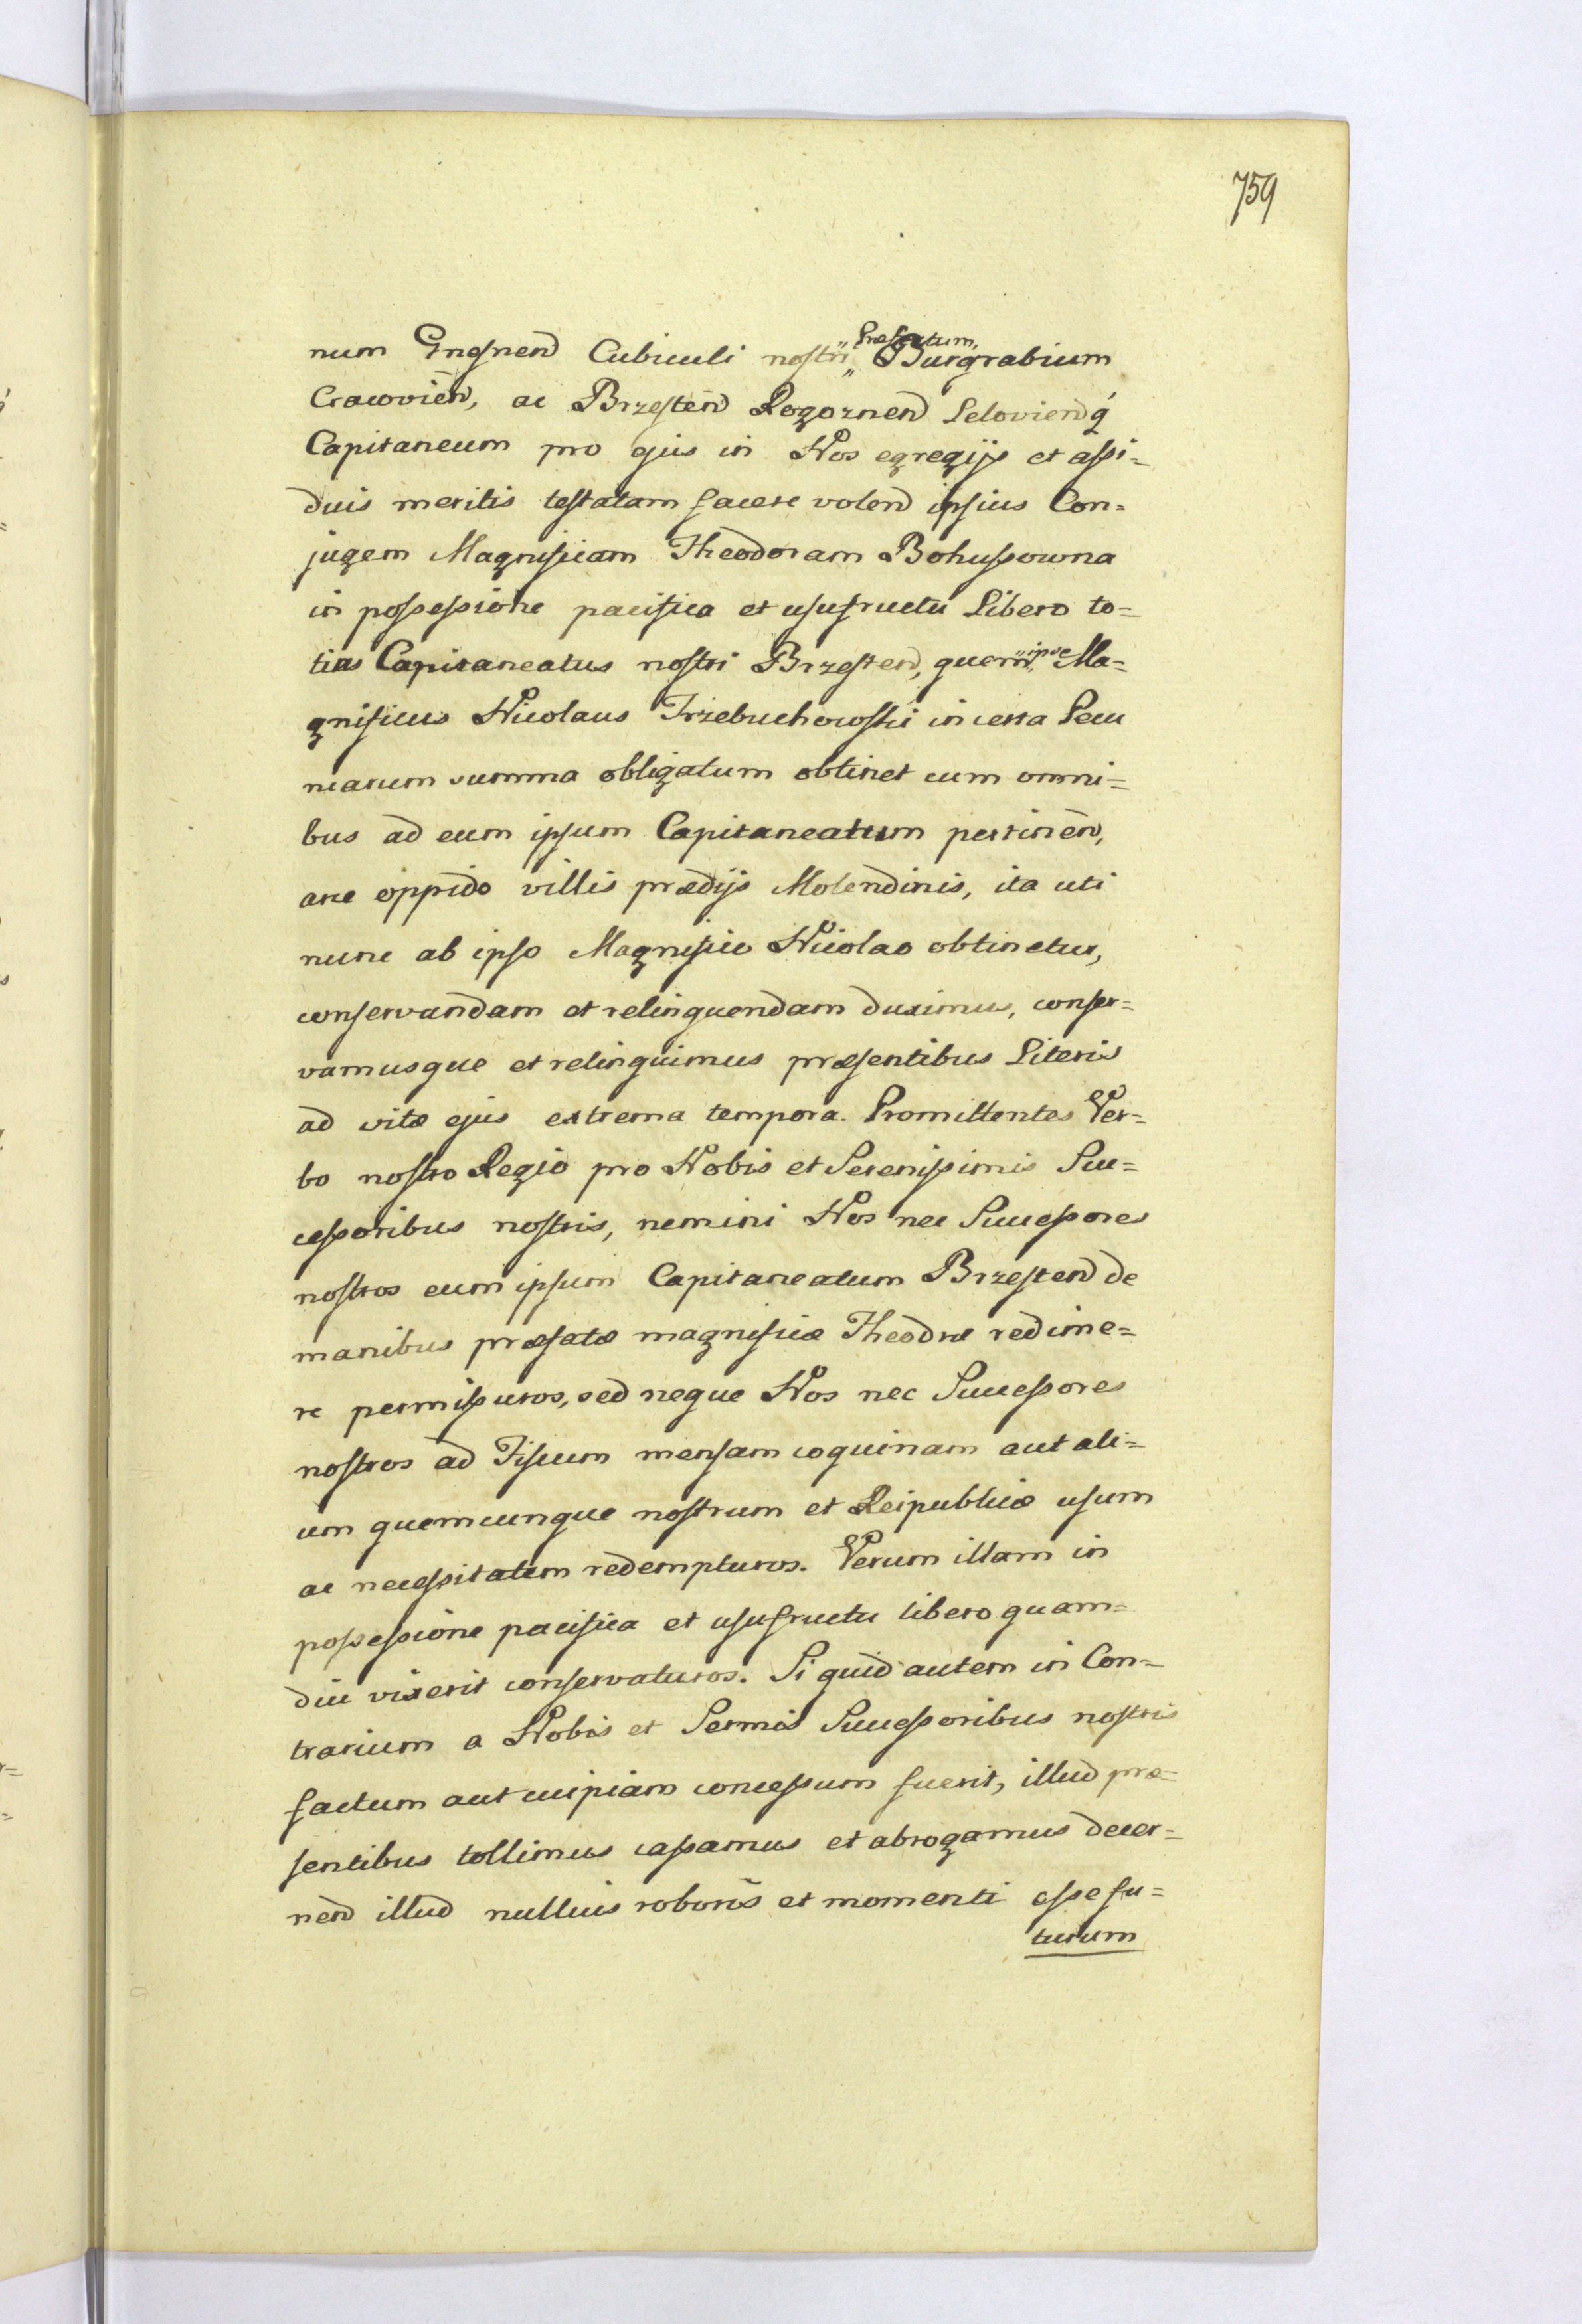 759
num Gnesnen Cubiculi nostri „Præfectum„ Burgrabium
Cracovien, ac Brzesten Rogoznen Lelovienq́
Capitaneum pro ejus in Nos egregijs et assi=
duis meritis testatam facere volen ipsius Con=
jugem Magnificam Theodoram Bohussowna
in possessione pacifica et usufructu Libero to=
tius Capitaneatus nostri Brzesten, quem „ipse„ Ma=
gnificus Nicolaus Trzebuchowski in certa Pecu
niarum summa obligatum obtinet cum omni=
bus ad eum ipsum Capitaneatum pertinen,
arce oppido villis prædijs Molendinis, ita uti
nunc ab ipso Magnifico Nicolao obtinetur,
conservandam et relinquendam duximus, conser=
vamusque et relinquimus præsentibus Literis
ad vitæ ejus extrema tempora. Promittentes Ver=
bo nostro Regio pro Nobis et Serenissimis Suc=
cessoribus nostris, nemini Nos nec Successores
nostros eum ipsum Capitaneatum Brzesten de
manibus præfatæ magnificæ Theodræ redime=
re permissuros, sed neque Nos nec Successores
nostros ad Fiscum mensam coquinam aut ali=
um quemcunque nostrum et Reipublicæ usum
ac necessitatem redempturos. Verum illam in
possessione pacifica et usufructu libero quam=
diu vixerit conservaturos. Si quid autem in Con=
trarium a Nobis et Sermis Successoribus nostris
factum aut cuipiam concessum fuerit, illud præ=
sentibus tollimus cassamus et abrogamus decer=
nen illud nullius roboris et momenti esse fu=
turum